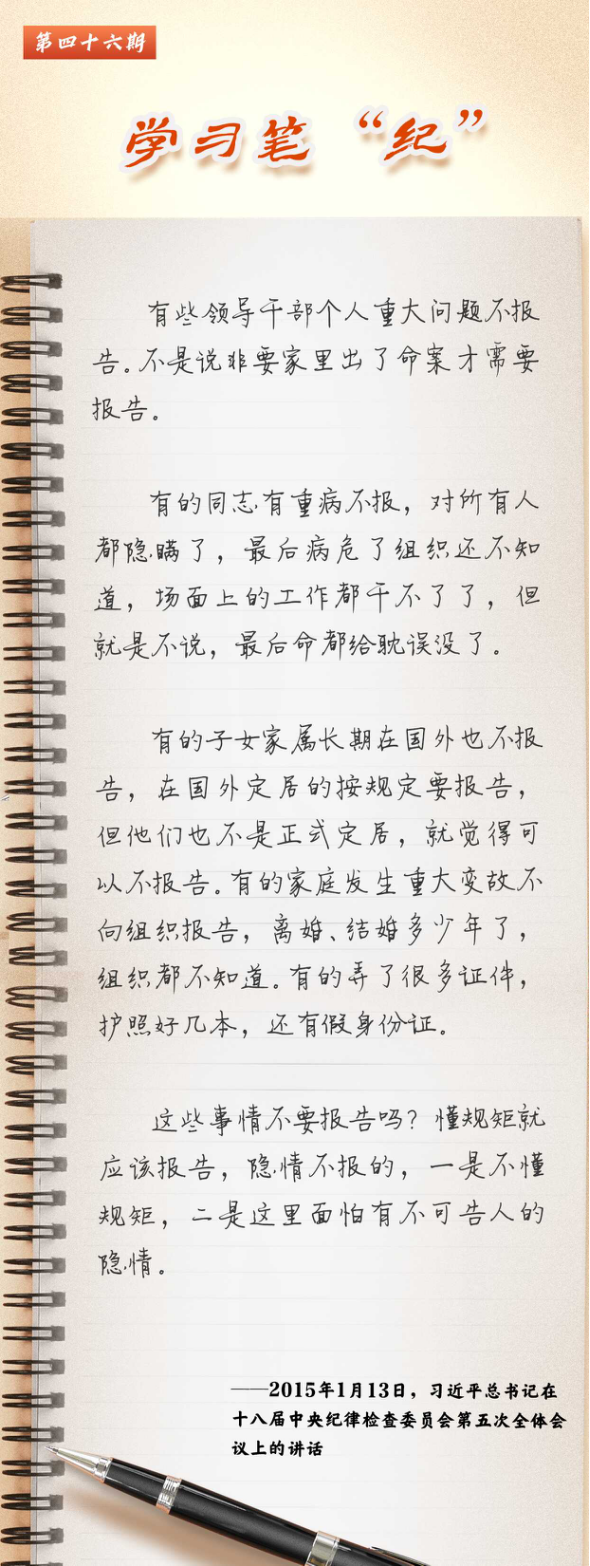 第四十六期
学习笔“纪”
有些领导干部个人重大问题不报
告。不是说非要家里出了命案才需要
报告。
有的同志有重病不报，对所有人
都隐瞒了，最后病危了组织还不知
道，场面上的工作都干不了了，但
就是不说，最后命都给耽误没了。
有的子女家属长期在国外也不报
告，在国外定居的按规定要报告，
但他们也不是正式定居，就觉得可
以不报告。有的家庭发生重大变故不
向组织报告，离婚、结婚多少年了，
组织都不知道。有的弄了很多证件，
护照好几本，还有假身份证。
这些事情不要报告吗？懂规矩就
应该报告，隐情不报的，一是不懂
规矩，二是这里面怕有不可告人的
隐情。
——2015年1月13日，习近平总书记在
十八届中央纪律检查委员会第五次全体会
议上的讲话